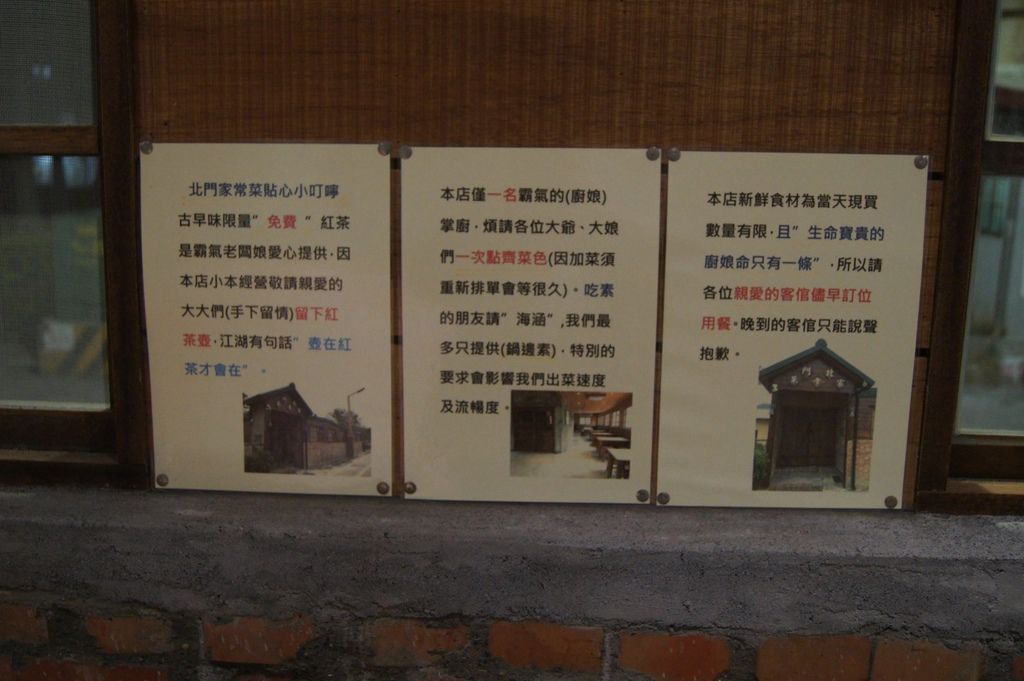 北門家常菜貼心小叮嚀
古早味限量”免費“紅茶
是霸氣老闆娘愛心提供,因
本店小本經營敬請親愛的
大大們(手下留情)留下紅
茶壺,江湖有句話”壺在紅
茶才會在”。
本店僅一名霸氣的(廚娘)
掌廚,煩請各位大爺、大娘
們一次點齊菜色(因加菜須
重新排單會等很久)。吃素
的朋友請”海涵”,我們最
多只提供(鍋邊素),特別的
要求會影響我們出菜速度
及流暢度。
本店新鮮食材為當天現買
數量有限,且”生命寶貴的
廚娘命只有一條”,所以請
各位親愛的客倌儘早訂位
用餐。晚到的客倌只能說聲
抱歉。